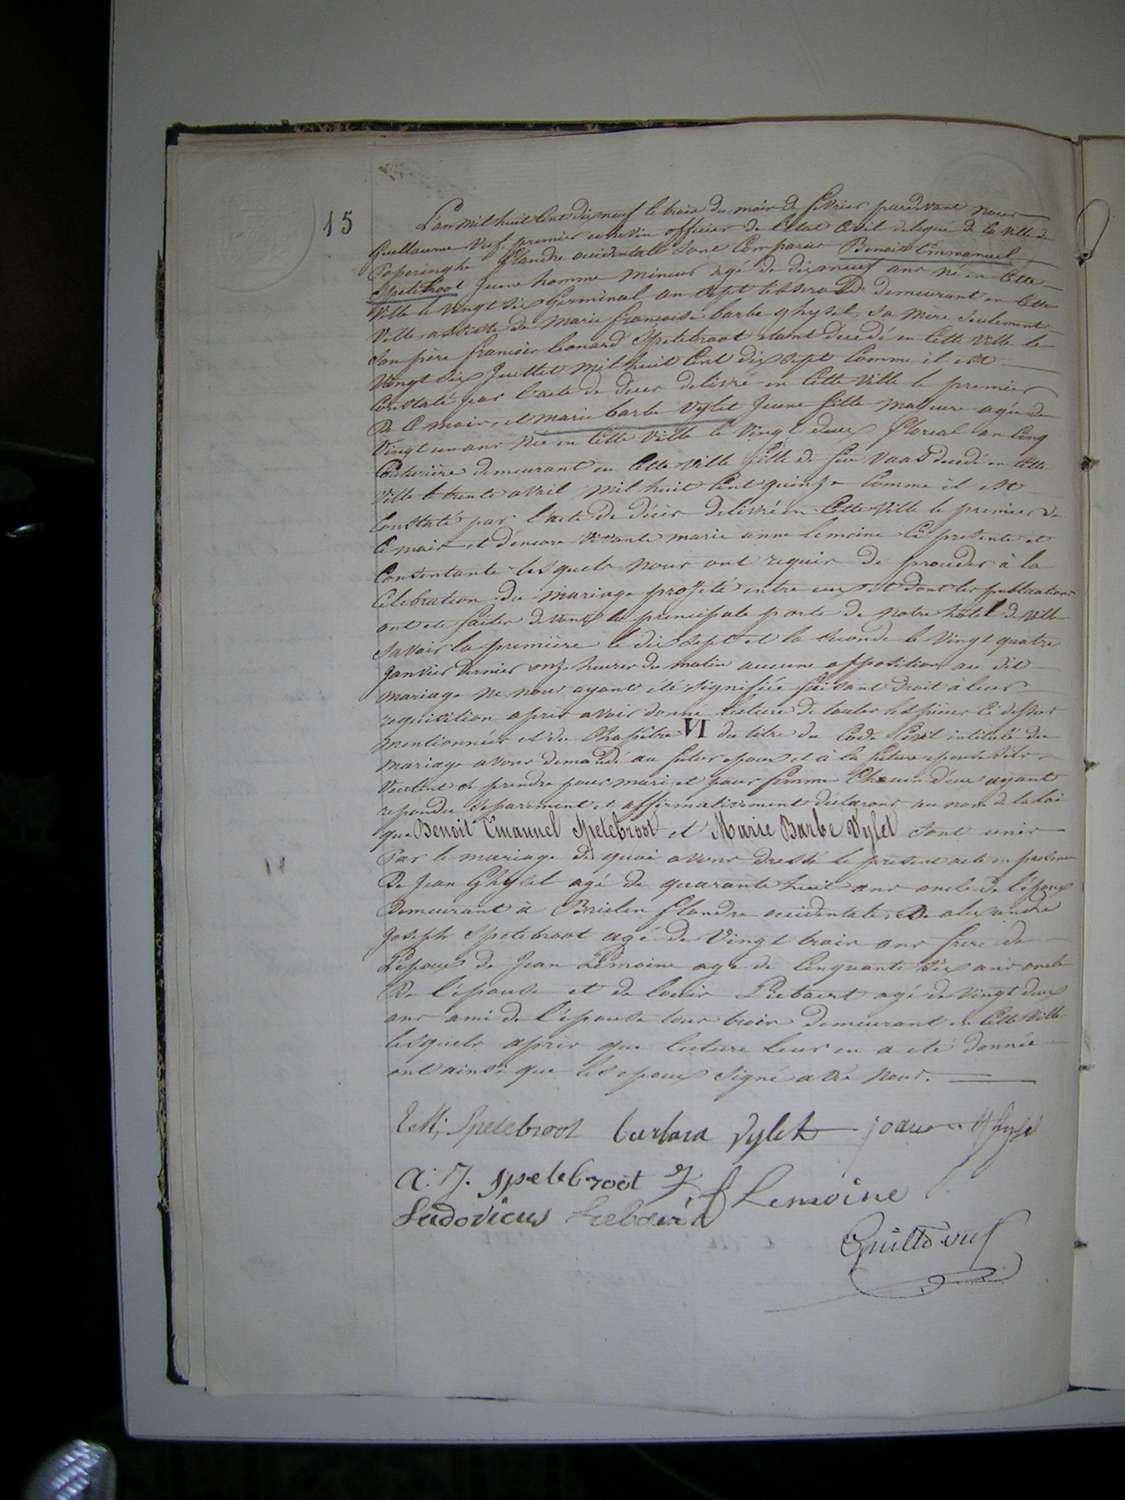 15
L'an mil huit Cent dix neuf le trois du mois de fevrier pardevant nous
Guillaume Vuf premier echevin officier de l'état Civil delegué de la ville de
Poperinghe flandre occidentale sont Comparus Benoit Emmanuel
Spetebroot Jeune homme mineur agé de dix neuf ans né en Cette
Ville le vingt six Germinal an Sept demeurant en Cette
Ville assisté de marie françoise barbe ghysel sa mere seulement
Son père francois Leonard Spetebroot etant decedé en Cette Ville le
Vingt six Juillet mil huit Cent dix sept Comme il est
Constaté par l'acte de deces delivré en Cette Ville le premier
de Ce mois, et marie barbe Vylet Jeune fille majeure agée de
Vingt un ans née en Cette Ville le Vingt deux floreal an Cinq
Couturière demeurant en Cette Ville fille de feu decedé en Cette
Ville le trente avril mil huit Cent quinze Comme il est
Constaté par l'acte de décès delivré en Cette Ville le premier de
Ce mois et d'encore vivante marie anne Lemoine Ci presente et
Consentante lesquels nous ont requis de proceder à la
Célébration du mariage projeté entre eux et dont les publications
ont eté faites devant la principale porte de notre hôtel de Ville
Savoir la première le dix sept et la seconde le Vingt quatre
Janvier dernier onze heures du matin aucune opposition au dit
mariage ne nous ayant été signifiée faisant droit à leur
requisition après avoir donné lecture de toutes les pièces Ci dessus
mentionnées et du Chapitre VI du titre du Code Civil intitulé du
mariage avons demandé au futur epoux et à la future epouse s'ils
Veulent se prendre pour mari et pour femme Chacun d'eux ayant
repondu separement et affirmativement declarons au nom de la loi
que Benoit Emannel Spetebroot et Marie Barbe Vylet sont unis
Par le mariage de quoi avons dressé le present acte en presence
De Jean Ghysel agé de quarante huit ans oncle de l'époux
Demeurant à Brielen flandre occidentale, De alexandre
Joseph Spetebroot agé de Vingt trois ans frere de
L'époux de Jean Lemoine agé de Cinquante six ans oncle
De l'épouse et de Louis Liebaert agé de vingt deux
ans ami de l'épouse tous trois demeurant en Cette Ville
lesquels après que lecture leur en a eté donnée
ont ainsi que les epoux signé avec Nous.
Spetebroot barbara Vylet joannes Ghysel
a: J. spetebroot J f Lemoine
Ludovicus Liebaert
Guille vuf